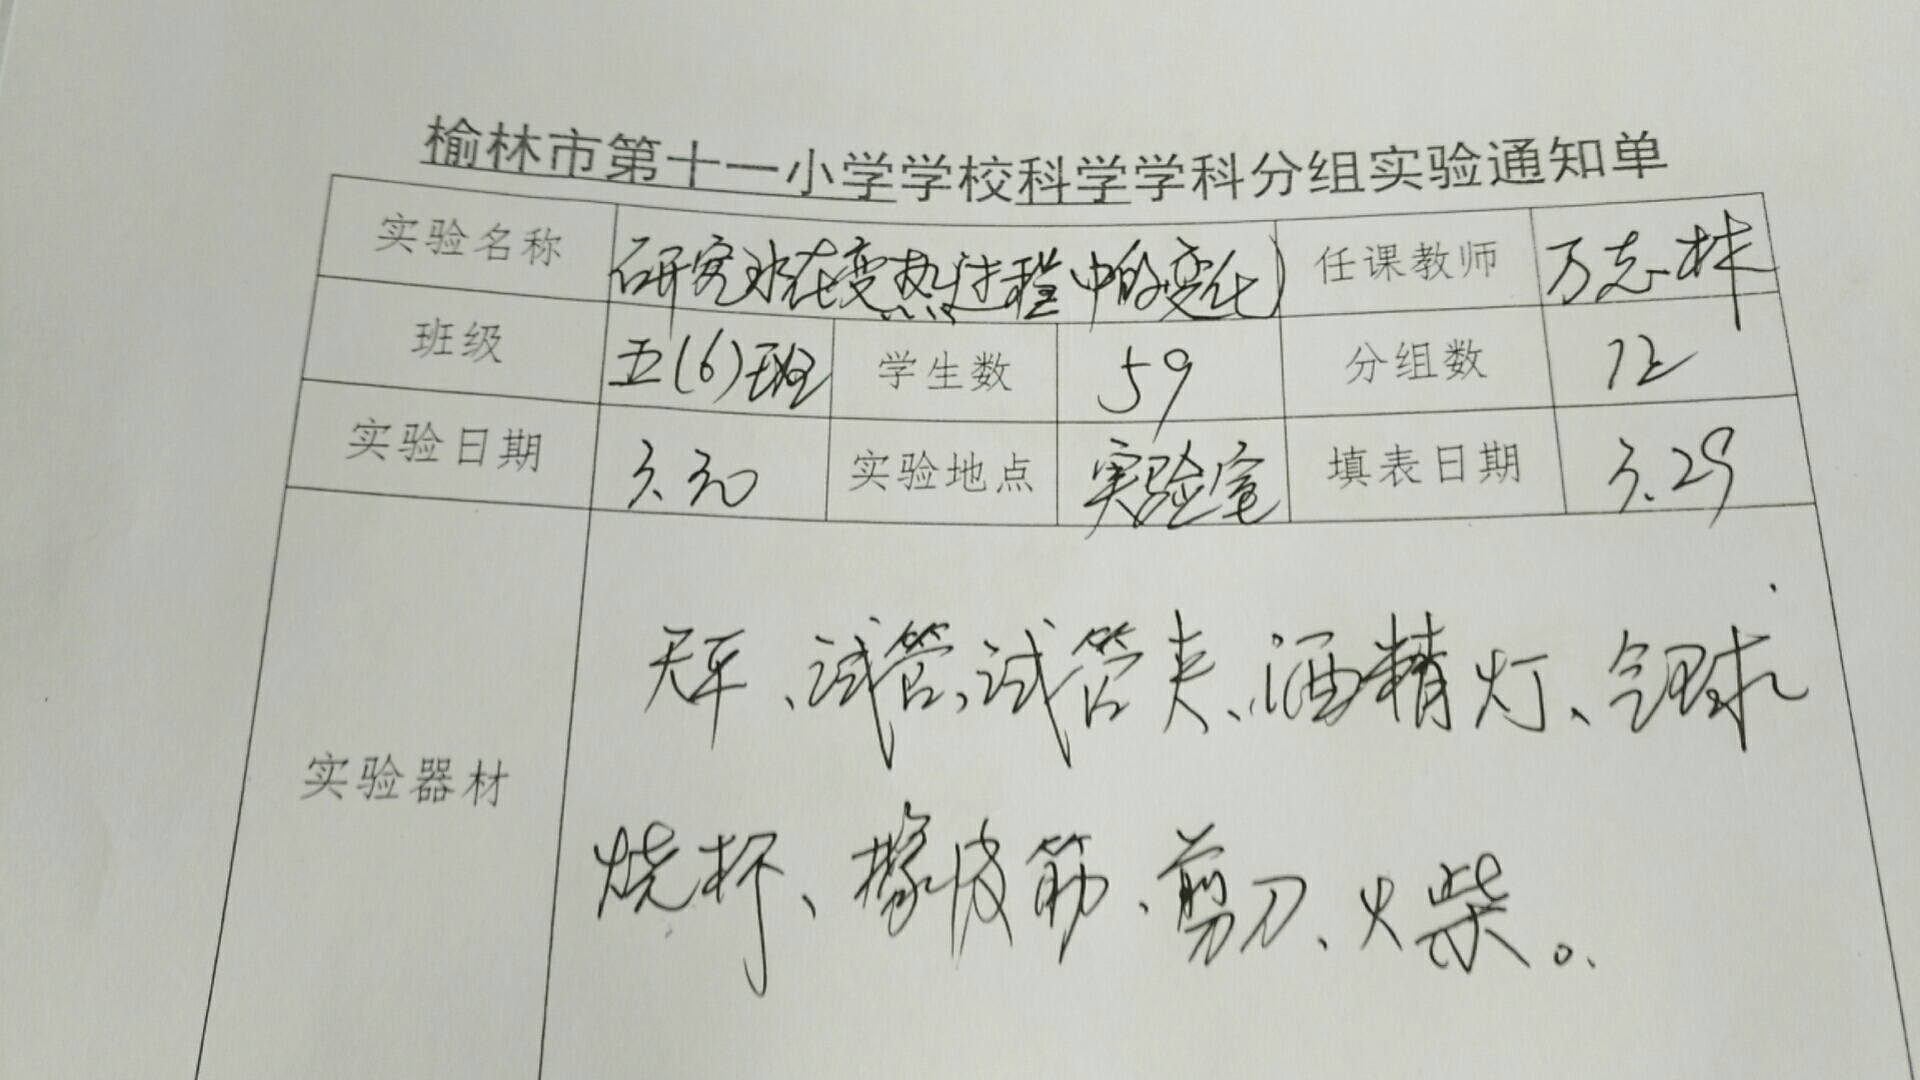 榆林市第十一小学学校科学学科分组实验通知单
实验名称 研究水在变热过程中的变化 任课教师 万志林
班级 五(6)班 学生数 59 分组数 12
实验日期 3.30 实验地点 实验室 填表日期 3.29
实验器材 天平、试管、试管夹、酒精灯、气球
烧杯、橡皮筋、剪刀、火柴。